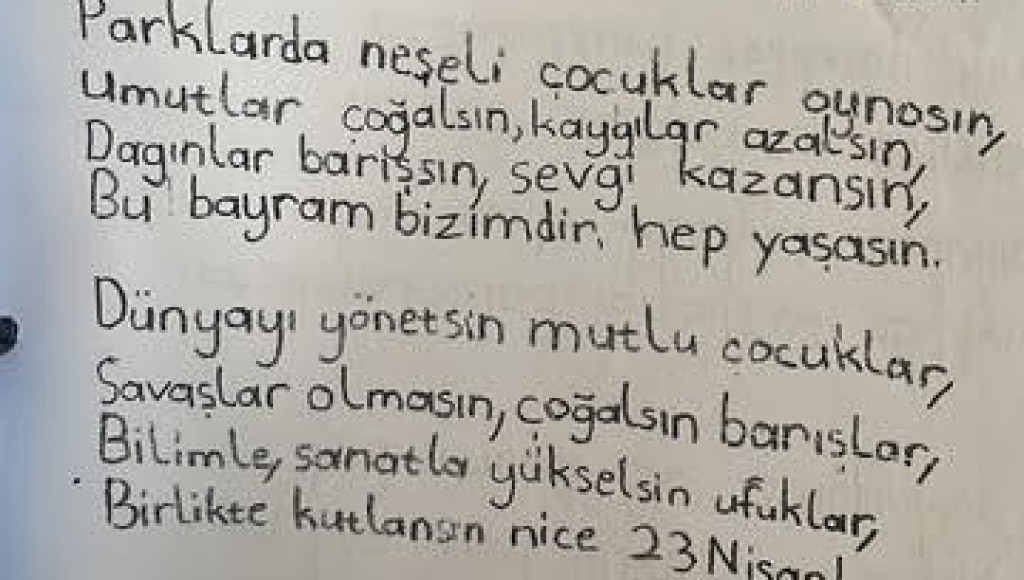 Parklarda neşeli çocuklar oynosın,
Umutlar çoğalsın, kaygılar azalsın,
Dagınlar barışsın, sevgi kazansın,
Bu bayram bizimdir, hep yaşasın.
Dünyayı yönetsin mutlu çocuklar,
Savaşlar olmasın, çoğalsın barışlar,
Bilimle, sanatla yükselsin ufuklar,
Birlikte kutlansın nice 23 Nisan!